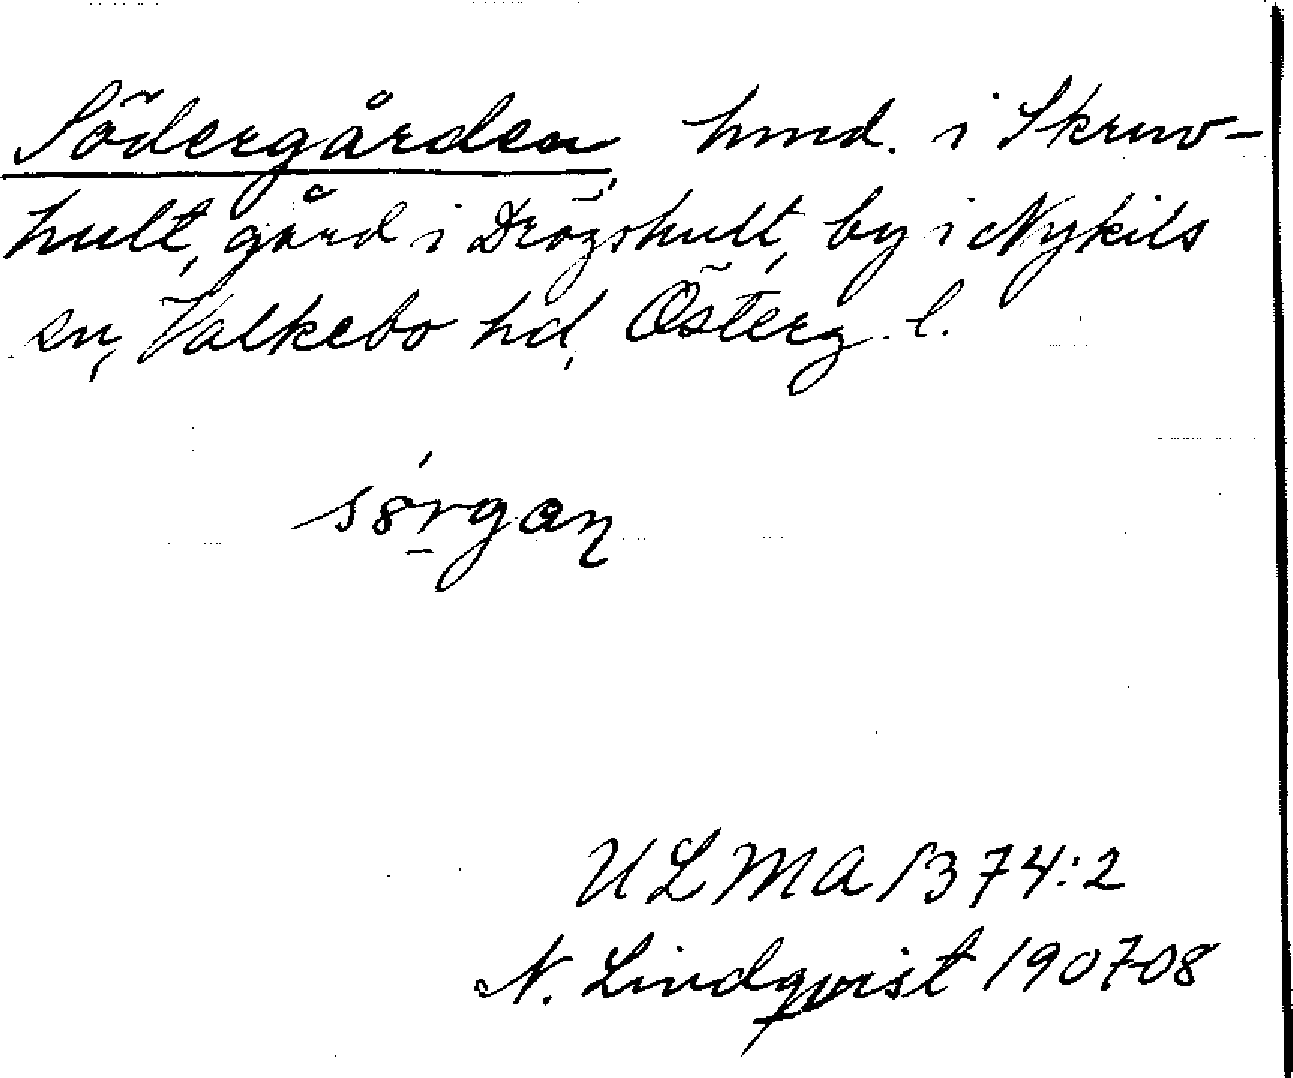 Södergården, hmd. i Skruv-
hult, gård i Drögshult, by i Nykils
sn, Valkebo hd, Österg. l.
sörgan
ULMA 1374:2
N. Lindqvist 1907-08